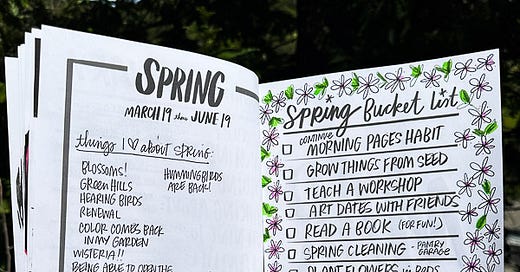 SPRING
MARCH 19 thru JUNE 19
things I ♡ about spring:
BLOSSOMS!
GREEN HILLS
HEARING BIRDS
RENEWAL
COLOR COMES BACK
IN MY GARDEN
WISTERIA!!
BEING ABLE TO OPEN THE
HUMMINGBIRDS
ARE BACK!
Spring Bucket List
CONTINUE
MORNING PAGES HABIT
GROW THINGS FROM SEED
TEACH A WORKSHOP
ART DATES WITH FRIENDS
READ A BOOK (FOR FUN!)
SPRING CLEANING - PANTRY
GARAGE
PLANT FLOWERS in BEDS